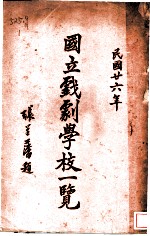 民國廿六年
國立戲劇學校一覽
張道藩題
525.9
1